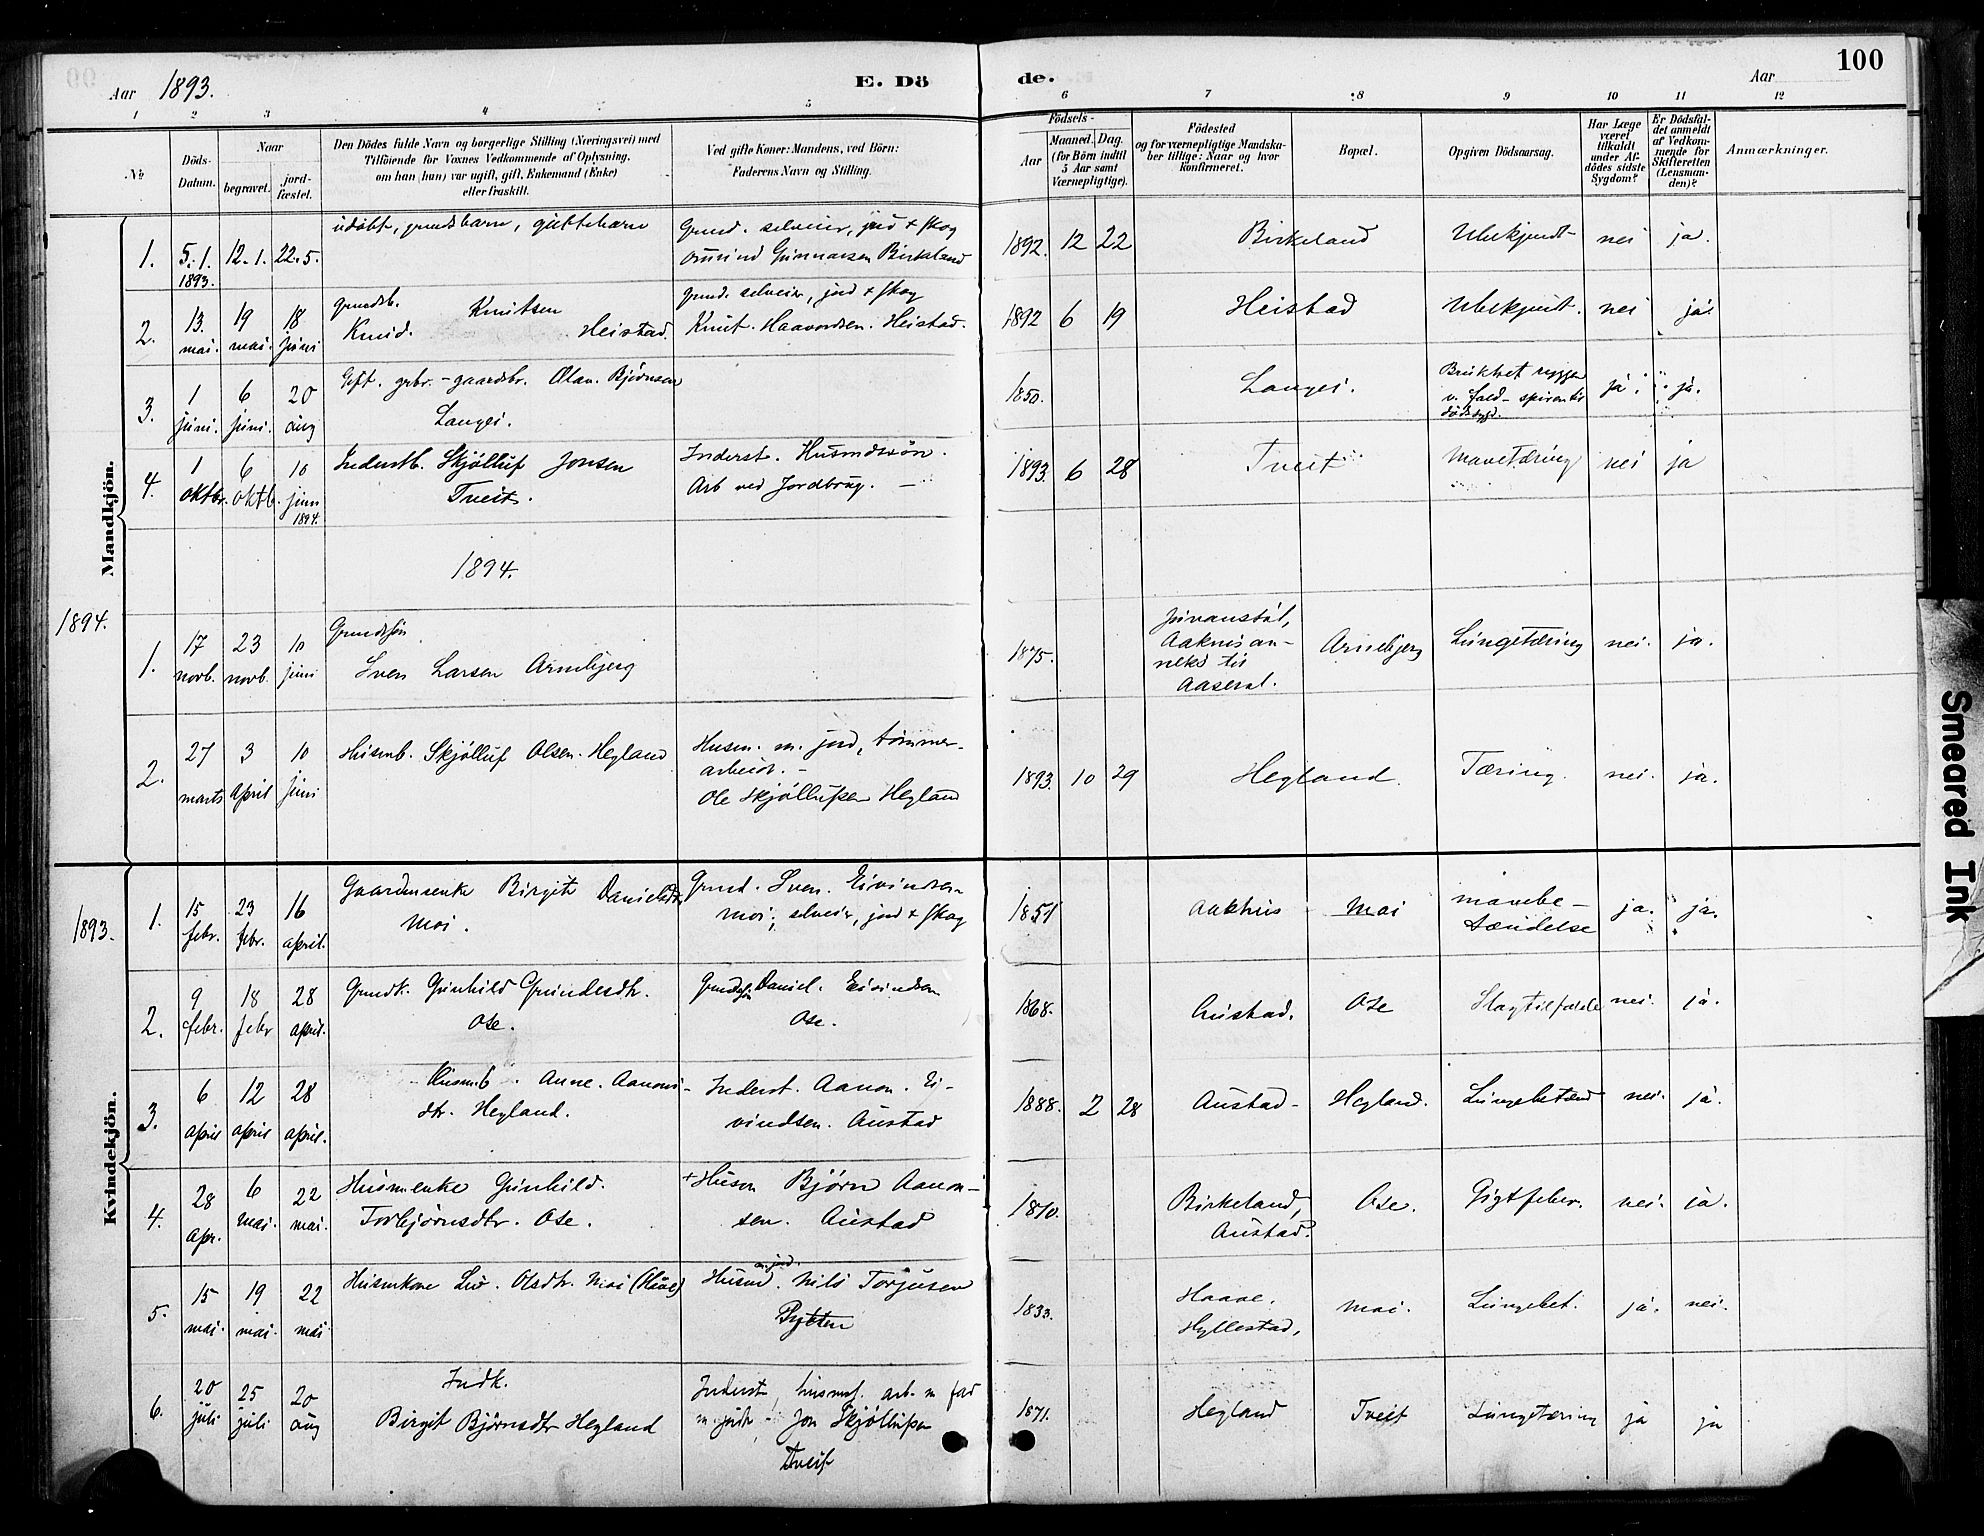 Aar 1893.
E. Dö
de.
Aar
100
1 2 3 4 5
6 7 8 9 10 11 12
No.
Döds-Datum.
Naar
begravet.
jord-fæstet.
Den Dödes fulde Navn og borgerlige Stilling (Næringsvei) med
Tilföiende for Voxnes Vedkommende af Oplysning,
om han (hun) var ugift, gift, Enkemand (Enke)
eller fraskilt.
Ved gifte Koner: Mandens, ved Börn:
Faderens Navn og Stilling.
Födsels-
Aar
Maaned. Dag.
(for Börn indtil
5 Aar samt
Værnepligtige).
Födested
og for værnepligtige Mandska-
ber tillige: Naar og hvor
konfirmeret.
Bopæl.
Opgiven Dödsaarsag.
Har Læge
været
tilkaldt
under Af-
dödes sidste
Sygdom?
Er Dödsfal-
det anmeldt
af Vedkom-
mende for
Skifteretten
(Lensman-
den)?
Anmærkninger.
Mandkjön.
1. 5.1. 1893. 12.1. 22.5.
udøbt, grundsbarn, guttebarn
Grund. selveier, jord + skog
Gunnarsen Birkeland
1892. 12 22 Birkeland Ubekjendt nei ja.
2. 13 mai. 19 mai. 18 juni
Grundsb. Knutsen
Knud. Heistad.
Grund. selveier, jord + skog
Knut. Haavordsen. Heistad.
1892 6 19 Heistad Ubekjent. nei ja.
3. 1 juni. 6 juni. 20 aug
Gift. grbr. - gaardsbr. Olav. Bjørnsen
Langei.
1850. Langei.
Brukket ryggen
v. fald -
ja. ja.
4. 1 oktbr. 6 oktb. 10 juni 1894.
Inderstb. Skjølluf Jonsen
Tveit.
Inderst.
Arb ved Jordbrug. -
1893. 6 28 Tveit Mavetæring nei ja
1894.
1894.
1. 17 novb. 23 novb. 10 juni
Grundsøn
Sven Larsen Arnebjerg
1875.
Aaknis an-
neks til
Aaseral.
Arnebjerg Lungetæring nei. ja.
2. 27 marts 3 April 10 juni
Husmb. Skjølluf Olsen. Hegland
Husm. m. jord, tømmer-
arbeid. -
Ole Skjøllufsen Hegland
1893. 10 29 Hegland. Tæring. nei. ja.
Kvindekjön.
1893.
1. 15 febr. 23 febr. 16 april.
Gaardmenke Birgit Danielsdtr.
Moi.
Grund. Sven. Eivindsen
Moi; selveier, jord + skog
1851 Aakhus Moi
mavebe-
tændelse
ja. ja.
2. 9 febr. 18 febr 28 april.
Grundk. Gunhild Gundersdtr.
Ose.
Grundsøn Daniel. Eivindsen
Ose.
1868. Austad. Ose Slagtilfælde nei. ja.
3. 6 april 12 april 28 april.
Husmb. Anne. Aanons-
dtr. Hegland.
Inderst. Aanon. Ei-
vindsen. Austad
1888. 2 28 Austad - Hegland. Lungebetænd nei. ja.
4. 28 apr. 6 mai. 22 mai.
Husmenke Gunhild.
Torbjørnsdtr. Ose.
+ Husm Bjørn Aanon-
sen. Austad
1810.
Birkeland,
Austad.
Ose. Gigtfeber. nei. ja.
5. 15 mai. 19 mai. 22 mai.
Husmkone Liv. Olsdtr. Moi (Haae)
Husmd. m. jord. Nils Torjusen
Bytten
1833.
Haaae.
Hyllestad,
Moi. Lungebet. ja. nei.
6. 20 juli 25 juli 20 aug
Indk.
Birgit Bjørnsdtr Hegland
Inderst, husmsf. arb.
Jon Skjøllufsen
Tveit
1871. Hegland Tveit Lungetæring ja ja
Smeared Ink